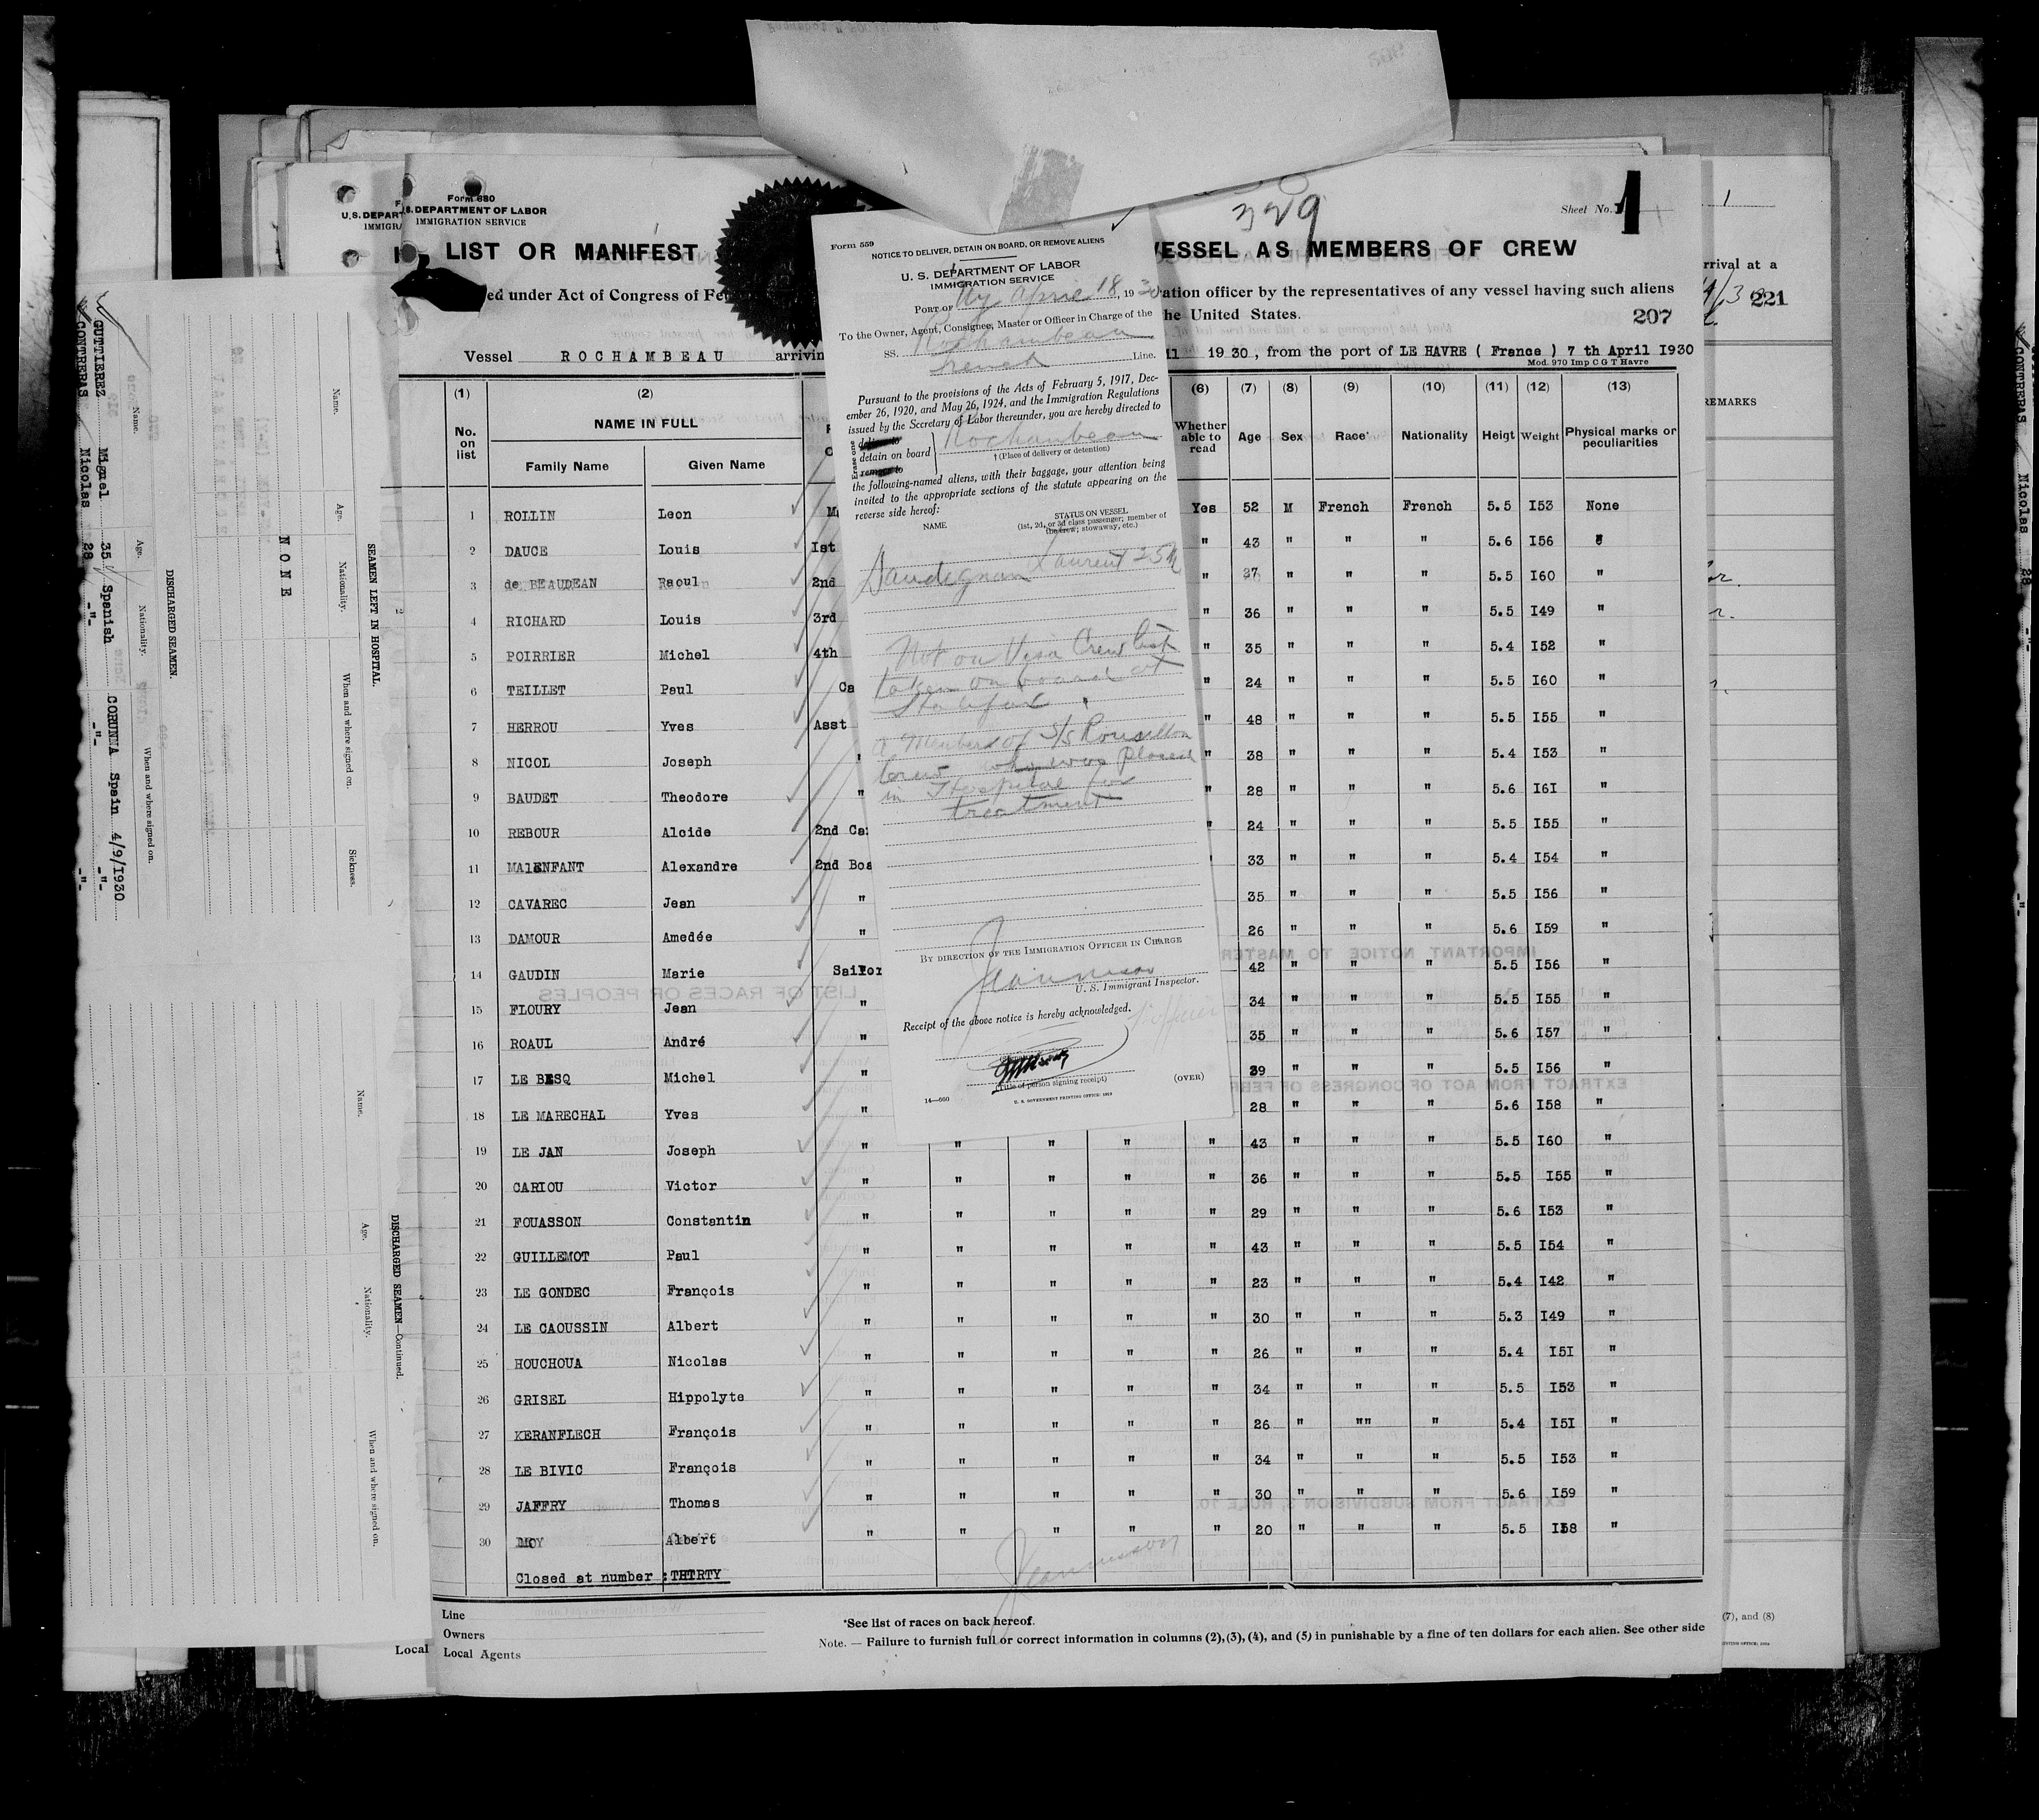 Form 680
U.S. DEPARTMENT OF LABOR
IMMIGRATION SERVICE
LIST OR MANIFEST
VESSEL AS MEMBERS OF CREW
329
Sheet No. 1
ed under Act of Congress of Fe
ation officer by the representatives of any vessel having such aliens
he United States.
207
Vessel ROCHAMBEAU arrivin
1930, from the port of LE HAVRE ( France ) 7 th April I930
Mod. 970 Imp C G T Havre
(1) (2) (6) (7) (8) (9) (10) (11) (12) (13)
No. on list NAME IN FULL Whether able to read Age Sex Race* Nationality Heigt Weight Physical marks or peculiarities
Family Name Given Name
1 ROLLIN Leon Yes 52 M French French 5.5 I53 None
2 DAUCE Louis Ist " 43 " " " 5.6 I56
3 de BEAUDEAN Raoul 2nd " 37 " " " 5.5 I60 "
4 RICHARD Louis 3rd " 36 " " " 5.5 I49 "
5 POIRRIER Michel 4th " 35 " " " 5.4 I52 "
6 TEILLET Paul Ca " 24 " " " 5.5 I60 "
7 HERROU Yves Asst " 48 " " " 5.5 I55 "
8 NICOL Joseph " 38 " " " 5.4 I53 "
9 BAUDET Theodore " " 28 " " " 5.6 I6I "
10 REBOUR Alcide 2nd Ca " 24 " " " 5.5 I55 "
11 MAlENFANT Alexandre 2nd Boa 33 " " " 5.4 I54 "
12 CAVAREC Jean " 35 " " " 5.5 I56 "
13 DAMOUR Amedée " 26 " " " 5.6 I59 "
14 GAUDIN Marie Sailor 42 " " " 5.5 I56 "
15 FLOURY Jean " 34 " " " 5.5 I55 "
16 ROAUL André " 35 " " " 5.6 I57 "
17 LE BESQ Michel " 39 " " " 5.5 I56 "
18 LE MARECHAL Yves " 28 " " " 5.6 I58 "
19 LE JAN Joseph " " " " " 43 " " " 5.5 I60 "
20 CARIOU Victor " " " " " 36 " " " 5.5 I55 "
21 FOUASSON Constantin " " " " " 29 " " " 5.6 I53 "
22 GUILLEMOT Paul " " " " " 43 " " " 5.5 I54 "
23 LE GONDEC François " " " " " 23 " " " 5.4 I42 "
24 LE CAOUSSIN Albert " " " " " 30 " " " 5.3 I49 "
25 HOUCHOUA Nicolas " " " " " 26 " " " 5.4 I5I "
26 GRISEL Hippolyte " " " " " 34 " " " 5.5 I53 "
27 KERANFLECH François " " " " " 26 " "" " 5.4 I5I "
28 LE BIVIC François " " " " " 34 " " " 5.5 I53 "
29 JAFFRY Thomas " " " " " 30 " " " 5.6 I59 "
30 MOY Albert " " " " " 20 " " " 5.5 I58 "
Closed at number : THIRTY
Line
Owners
Local Agents
*See list of races on back hereof.
Note. — Failure to furnish full or correct information in columns (2),(3), (4), and (5) in punishable by a fine of ten dollars for each alien. See other side
Form 559
NOTICE TO DELIVER, DETAIN ON BOARD, OR REMOVE ALIENS
U. S. DEPARTMENT OF LABOR
IMMIGRATION SERVICE
PORT OF Ny April 18, 1930
To the Owner, Agent, Consignee, Master or Officer in Charge of the
SS. Rochambeau
French Line.
Pursuant to the provisions of the Acts of February 5, 1917, Dec-
ember 26, 1920, and May 26, 1924, and the Immigration Regulations
issued by the Secretary of Labor thereunder, you are hereby directed to
Erase one
deliver to
detain on board
remove to
Rochambeau
† (Place of delivery or detention)
the following-named aliens, with their baggage, your attention being
invited to the appropriate sections of the statute appearing on the
reverse side hereof:
NAME
STATUS ON VESSEL
(1st, 2d, or 3d class passenger; member of
the crew; stowaway, etc.)
Laurent 25
Not on Visa Crew list
taken on board at
Halifax
a Member of S/S Rousillon
Crew who was placed
in Hospital for
treatment
BY DIRECTION OF THE IMMIGRATION OFFICER IN CHARGE
U. S. Immigrant Inspector.
Receipt of the above notice is hereby acknowledged.
(Title of person signing receipt)
(OVER)
14—660
U. S. GOVERNMENT PRINTING OFFICE: 1919
SEAMEN LEFT IN HOSPITAL.
Name. Age. Nationality. When and where signed on. Sickness.
NONE
DISCHARGED SEAMEN.
Name. Age. Nationality. When and where signed on.
GUTTIEREZ Miguel 35 Spanish CORUNNA Spain 4/9/I930
CONTRERAS Nicolas 28 -"- -"- -"-
DISCHARGED SEAMEN—Continued.
Name. Age. Nationality. When and where signed on.
1
rrival at a
221
REMARKS
(7), and (8)
Local
CONTRERAS Nicolas 28 -"- -"-